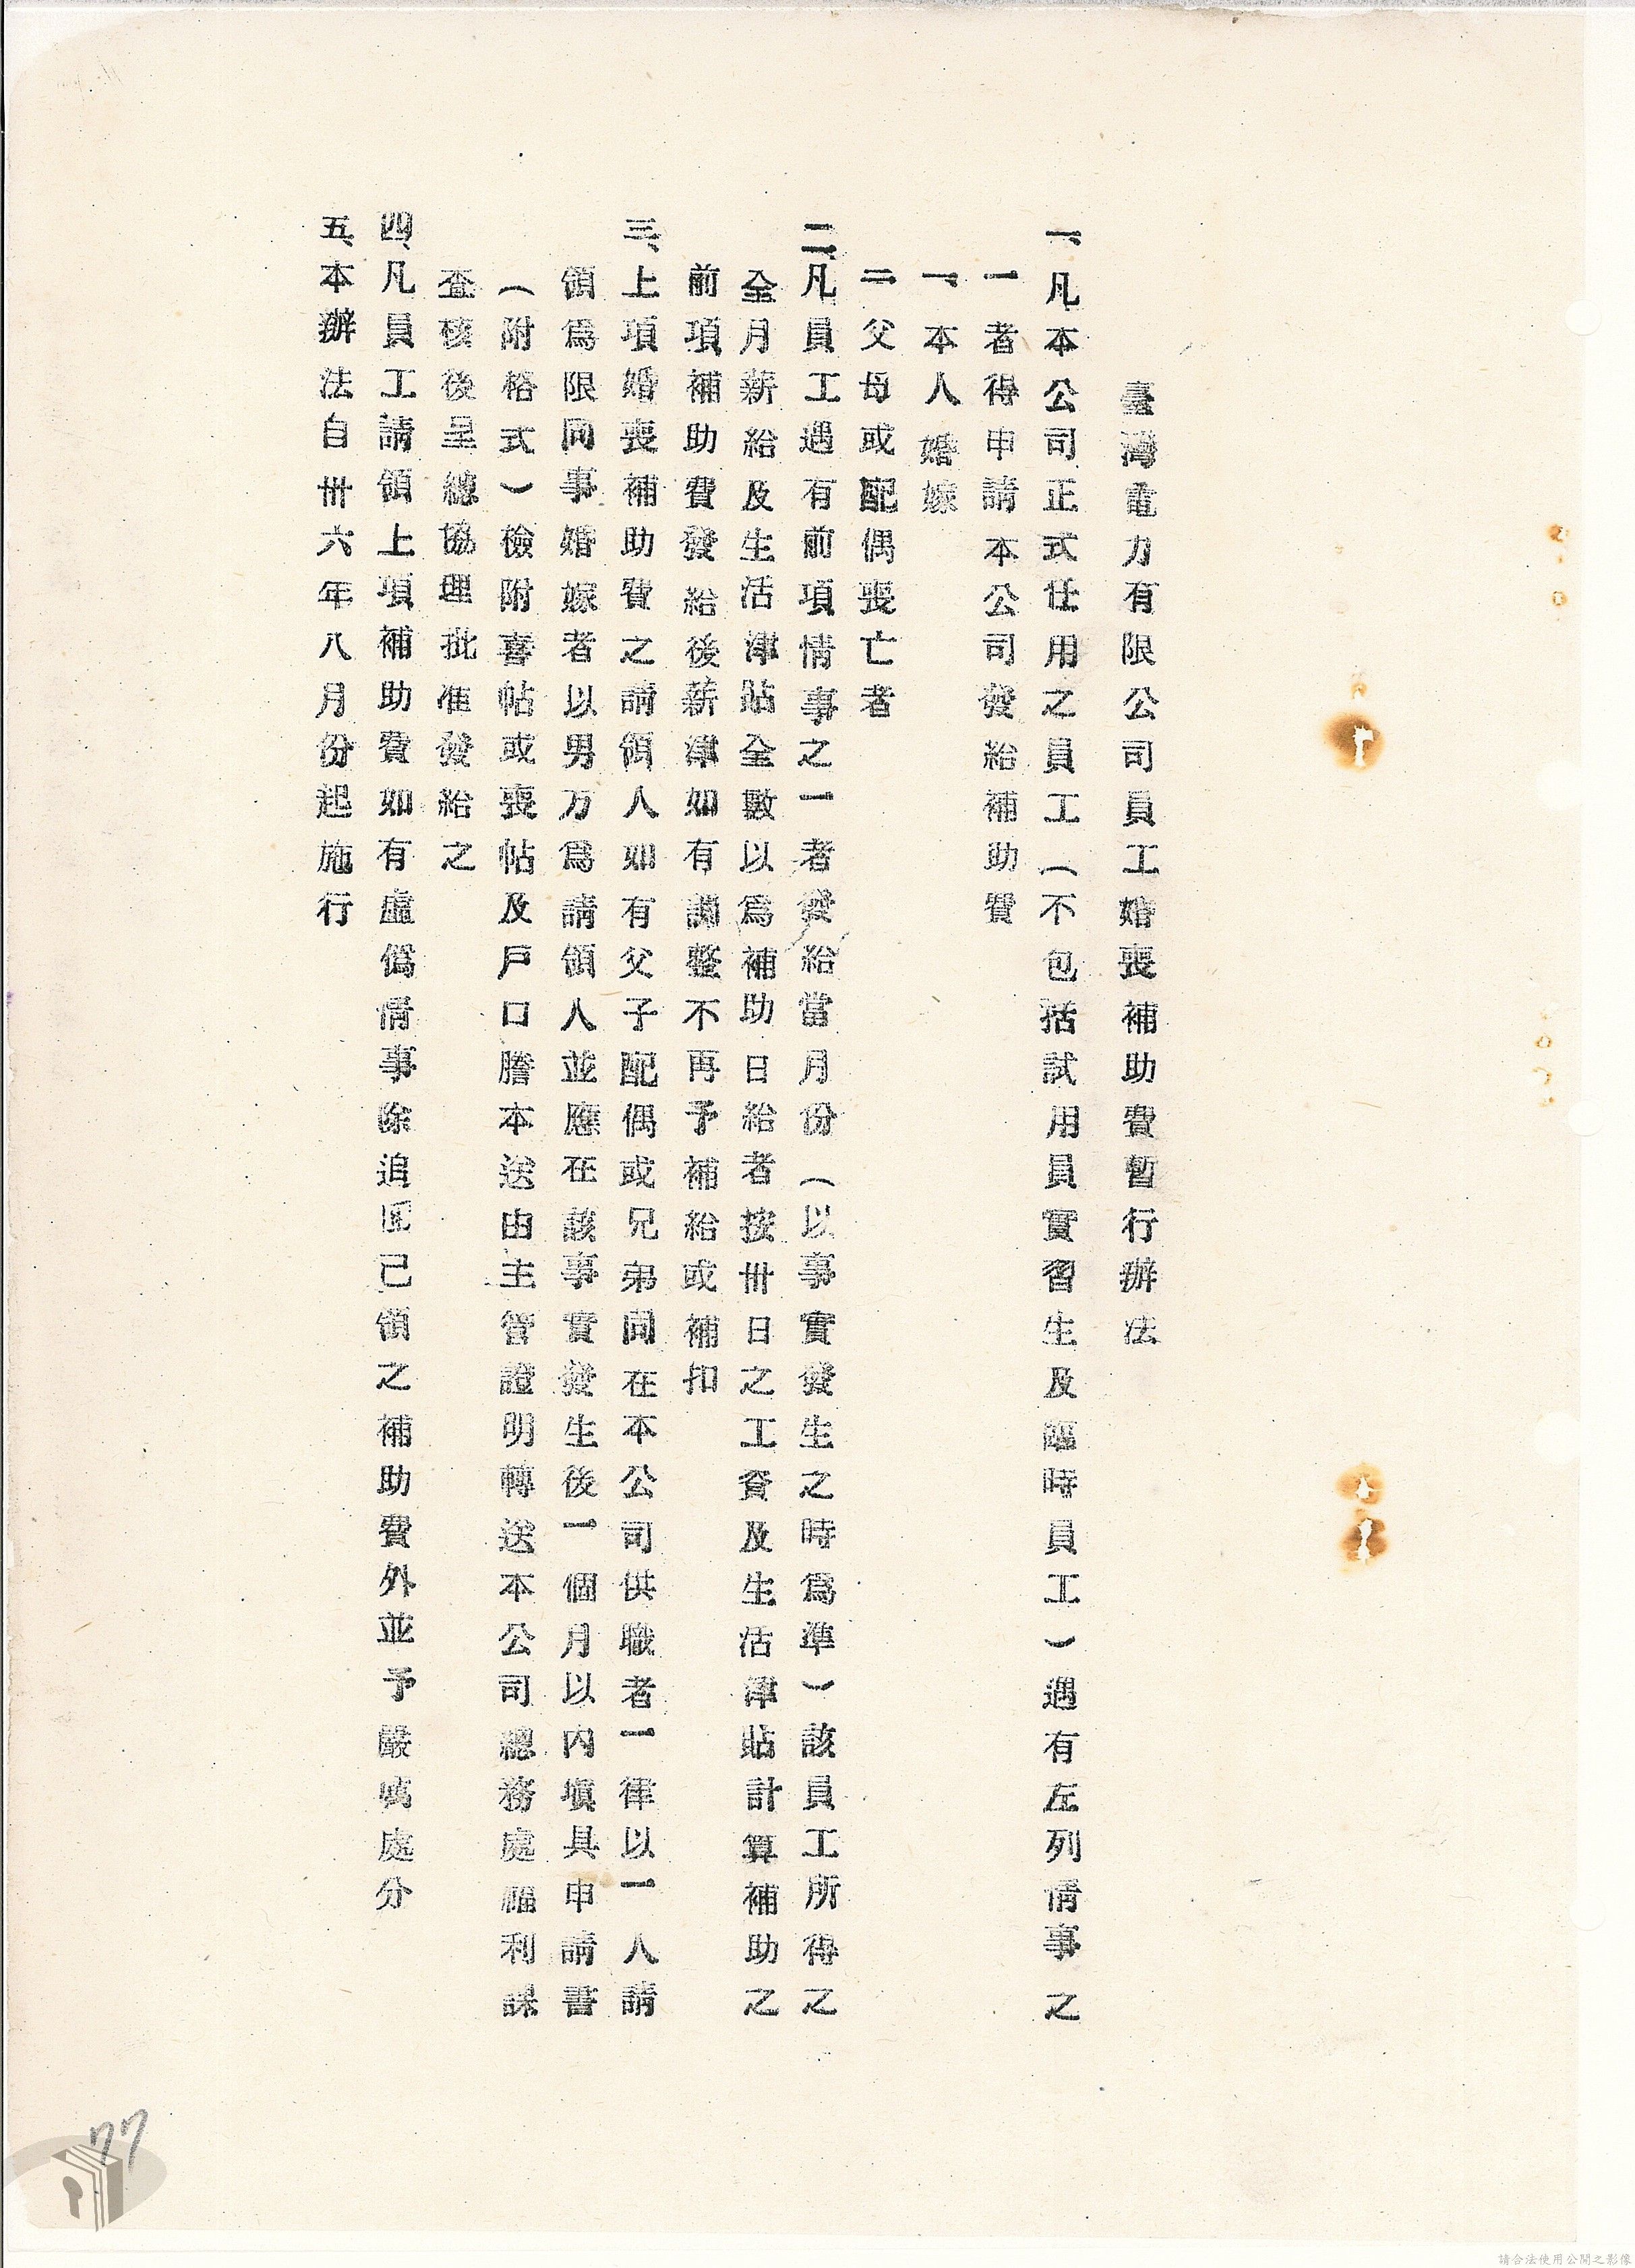 臺灣電力有限公司員工婚喪補助費暫行辦法
一、凡本公司正式任用之員工（不包括試用員實習生及臨時員工）遇有左列情事之
一者得申請本公司發給補助費
一、本人婚嫁
二父母或配偶喪亡者
二、凡員工遇有前項情事之一者發給當月份（以事實發生之時為準）該員工所得之
全月薪給及生活津貼全數以為補助日給者按卅日之工資及生活津貼計算補助之
前項補助費發給後薪津如有調整不再予補給或補扣
三、上項婚喪補助費之請領人如有父子配偶或兄弟同在本公司供職者一律以一人請
領為限同事婚嫁者以男方為請領人並應在該事實發生後一個月以內填具申請書
（附格式）檢附喜帖或喪帖及戶口謄本送由主管證明轉送本公司總務處福利課
查核後呈總協理批准發給之
四、凡員工請領上項補助費如有虛偽情事除追囘已領之補助費外並予嚴厲處分
五、本辦法自卅六年八月份起施行
77
請合法使用公開之影像